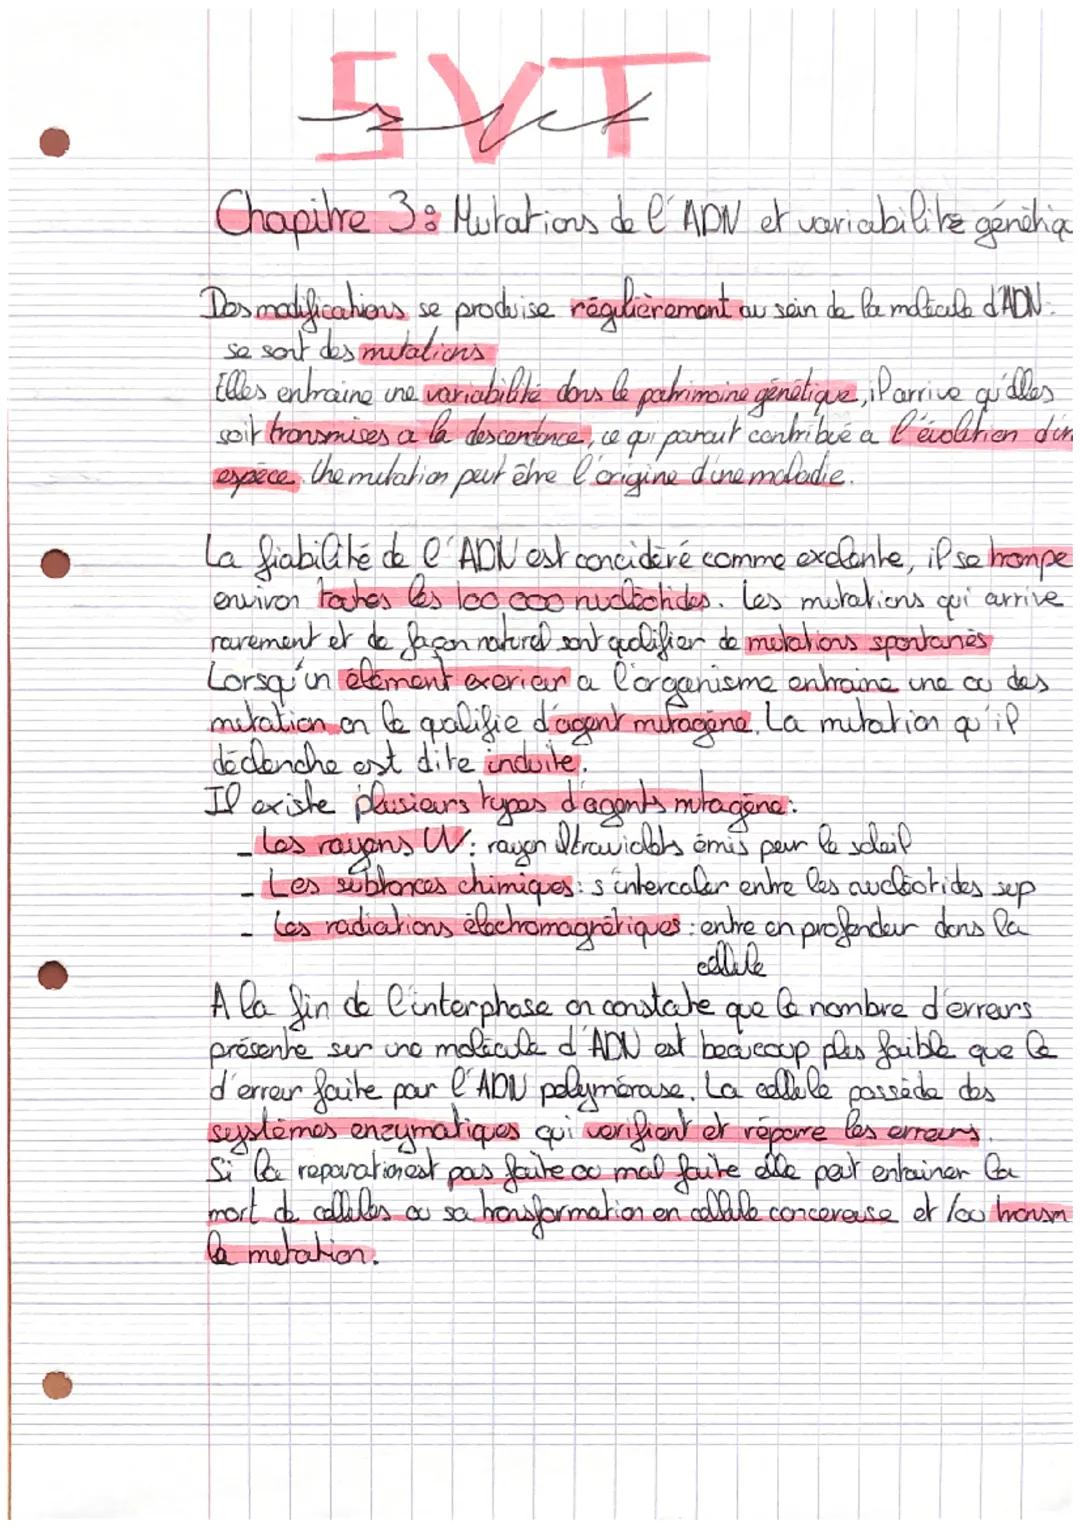 SVT
svt
Chapitre 3: Mutations de l'ADN et variabilité génétiq
Des modifications se produise régulièrement au sein de la molécule d'ADN.
se sont des mutations
Elles entraine une variabilité dans le patrimoine génétique, il arrive qu'elles
soit transmises a la descendance, ce qui parait contribué a l'évolution d'un
espèce. Une mutation peut être l'origine d'une maladie.
La fiabilité de l'ADN est concidéré comme exelante, il se trompe
environ toutes les 100 000 nucléotides. Les mutations qui arrive
rarement et de façon naturel sont qualifier de mutations spontanés
Lorsqu'un élément exerieur a l'organisme entraine une ou des
mutation on le qualifie d'agent mutagène. La mutation qu'il
déclenche est dite induite.
Il existe plusieurs types d'agents mutagène:
- Les rayons UV: rayon ultraviolets émis par le soleil
- Les subtances chimiques: s'intercaler entre les nucléotides sup
- Les radiations électromagnétiques: entre en profondeur dans la
cellule
A la fin de l'interphase on constate que le nombre d'erreurs
présente sur une molécule d'ADN est beaucoup plus faible que le
d'erreur faite par l'ADN polymérase. La cellule possède des
systèmes enzymatiques qui verifient et répare les erreurs.
Si la reparation est pas faite ou mal faite elle peut entainer la
mort de cellules ou sa transformation en cellule cancereuse et/ou transm
la mutation.